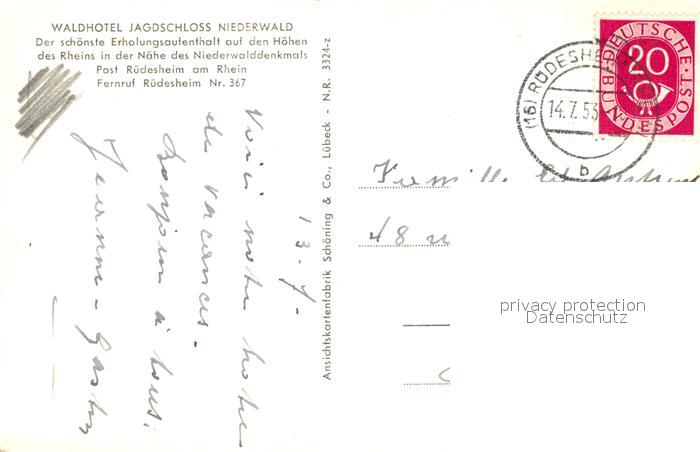 WALDHOTEL JAGDSCHLOSS NIEDERWALD
Der schönste Erholungsaufenthalt auf den Höhen
des Rheins in der Nähe des Niederwalddenkmals
Post Rüdesheim am Rhein
Fernruf Rüdesheim Nr. 367
Ansichtskartenfabrik Schöning & Co., Lübeck - N.R. 3324-z
13-7-
Voici notre hotel
de vacances.
Bonjour à tous.
Jeanne - Gaston
DEUTSCHE BUNDESPOST
20
(16) RÜDESHE
14.7.53
b
Famille
48
privacy protection
Datenschutz